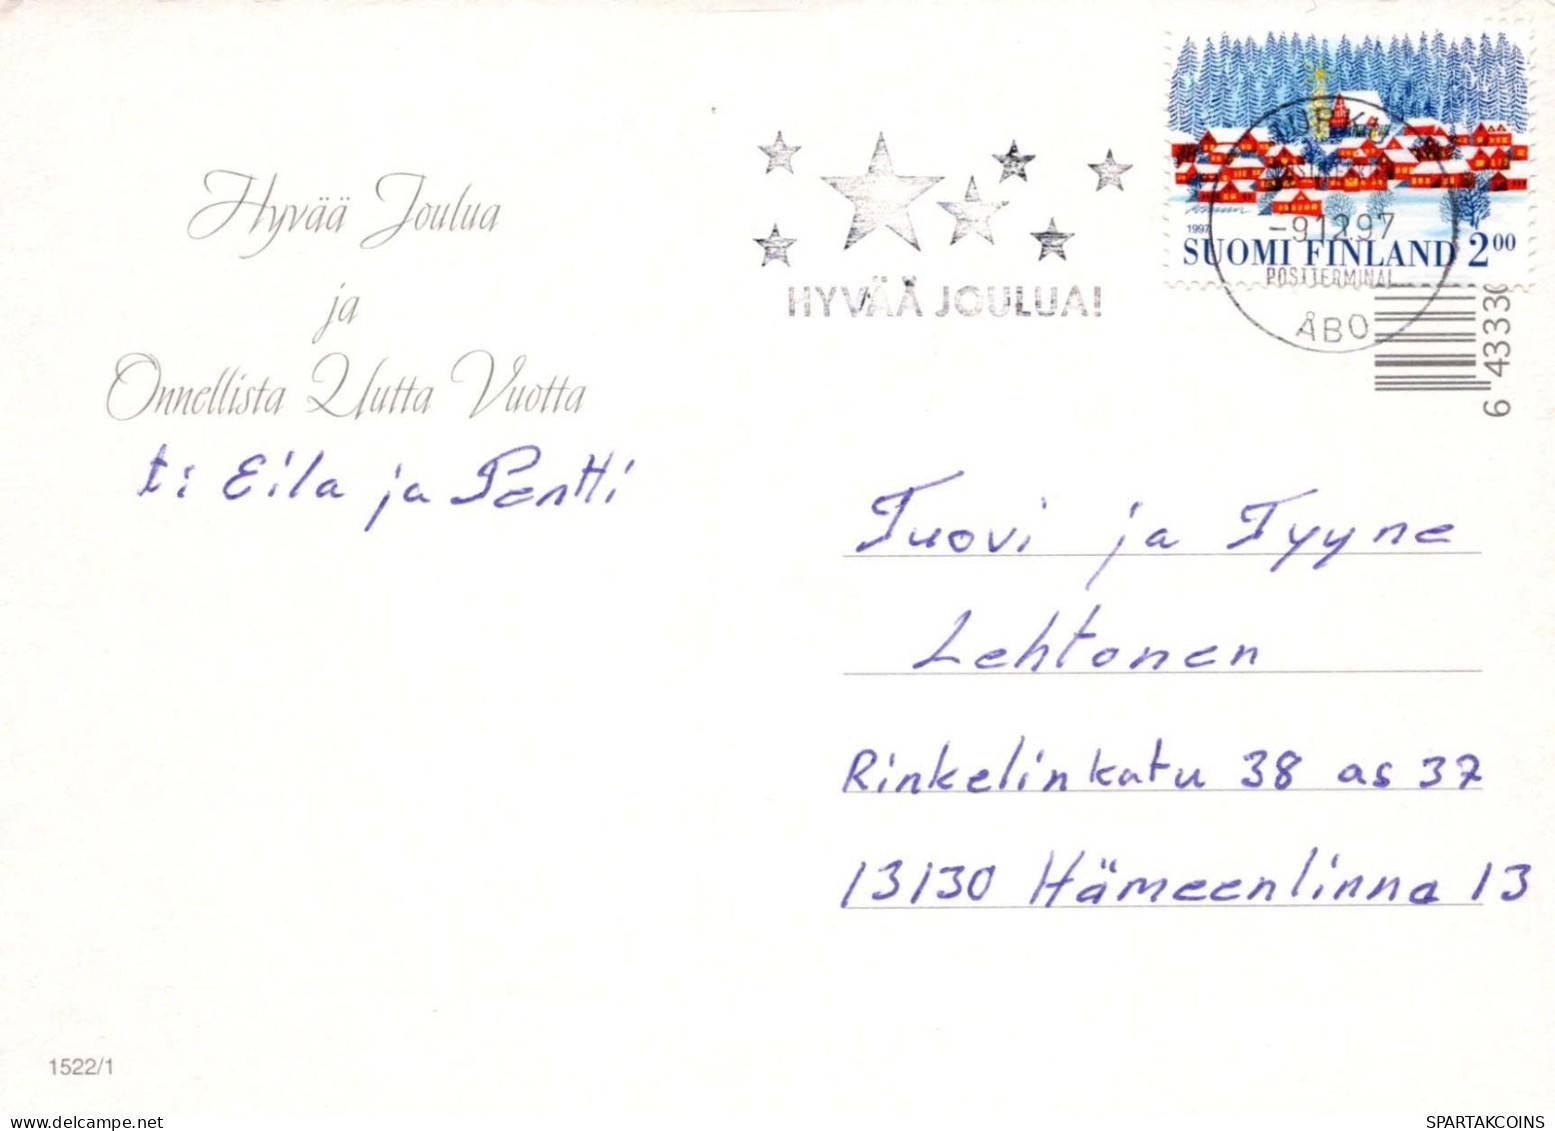 Hyvää Joulua
ja
Onnellista Uutta Vuotta
t: Eila ja Pentti
HYVÄÄ JOULUA!
TURKU
-9.12.97
POSTTERMINAL
ÅBO
1997
SUOMI FINLAND 200
6 43330
Tuovi ja Tyyne
Lehtonen
Rinkelinkatu 38 as 37
13130 Hämeenlinna 13
1522/1
SPARTAKCOINS